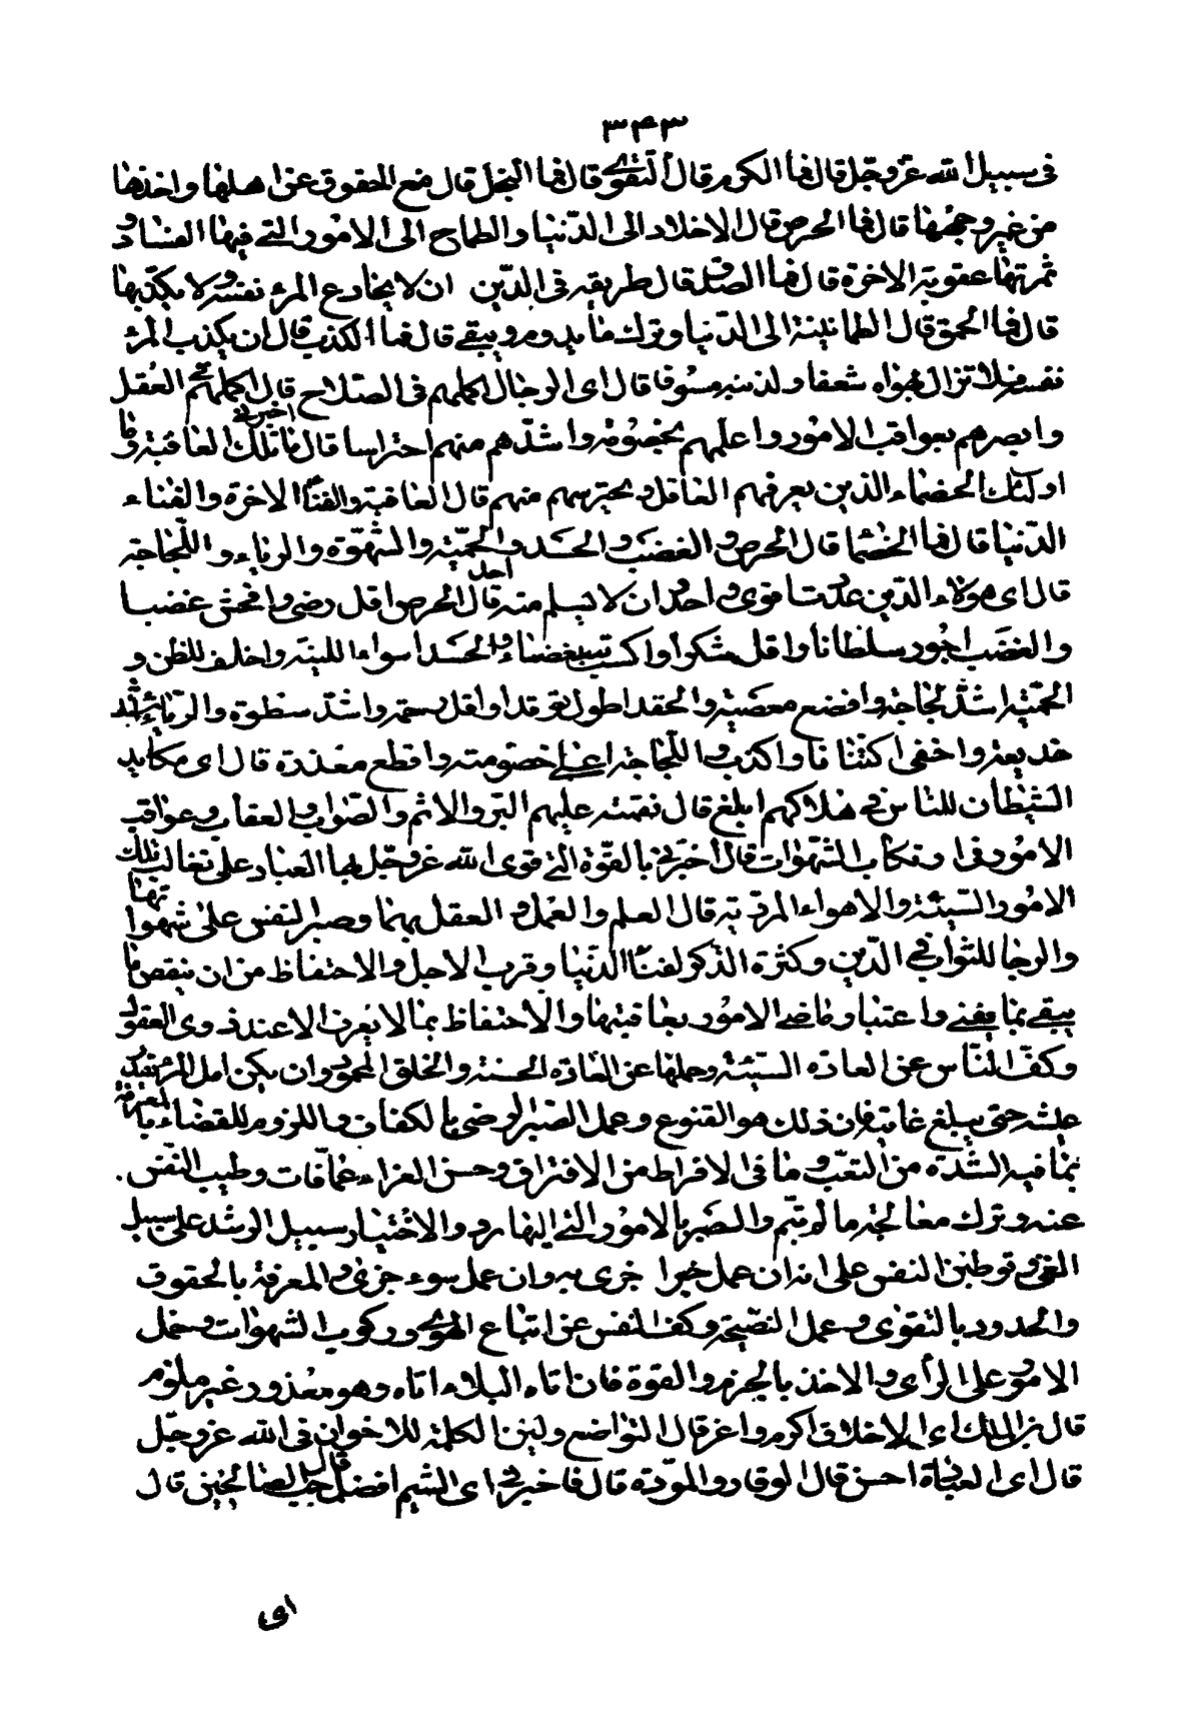 ٣٤٣
فى سبيل الله عزّ وجلّ قال فما الكرم قال التقوى قال فما البخل قال منع الحقوق عن اهلها واخذها
من غير وجهها قال فما الحرص قال الاخلاد الى الدّنيا والطماح الى الامور التى فيها الفساد و
ثمرتها عقوبة الاخرة قال فما الصدق قال طريقه فى الدّين ان لا يخادع المرء نفسه ولا يكذبها
قال فما الحمق قال الطمانينة الى الدّنيا وترك ما يدوم ويبقى قال فما الكذب قال ان يكذب المرء
نفسه فلا تزال بهواه شعفا ولدينه مسوفا قال اى الرجال اكملهم فى الصّلاح قال اكملهم فى العقل
وابصرهم بعواقب الامور واعلمهم بخصومه واشدّهم منهم احتراسا قال اخبرنى ما تلك العاقبة وما
اولئك الخصماء الذين يعرفهم العاقل ويحترس منهم قال العاقبة الاخرة والفناء
الدّنيا قال فما الخصما قال الحرص والغضب والحسد والحميّة والشهوة والرياء واللّجاجة
قال اى هؤلاء الذين عددت اقوى واحد ان لا يسلم منه احد قال الحرص اقل رضى وافحش غضبا
والغضب اجور سلطانا واقل شكرا واكسب للبغضاء والحسد اسواء للنيّة واخلف للظن و
الحميّة اشدّ لجاجة وافضع معصية والحقد اطول توقدا واقل رحمة واشدّ سطوة والرياء اشد
خديعة واخفى اكتتانا واكذب واللّجاجة اعيى خصومته واقطع معذرة قال اى مكايد
الشيطان للناس فى هلاكهم ابلغ قال تعميته عليهم البر والاثم والصواب والعقاب وعواقب
الامور فى ارتكاب الشهوات قال اخبرنى بالقوّة التى قوى الله عزّ وجلّ بها العباد على تغالب تلك
الامور السيئة والاهواء المردية قال العلم والعمل والعقل بهما وصبر النفس على شهواتها
والرجا للثواب فى الدّين وكثرة الذكر لفناء الدّنيا وقرب الاجل والاحتفاظ من ان ينقص ما
يبقى بما يفنى واعتبار ماضى الامور بعاقبتها والاحتفاظ بما لا يعرف الا عند ذوى العقول
وكفّ النّاس عن العادة السيّئة وحملها عن العادة الحسنة والخلق المحمود وان يكن امل المرء بقدر
عيشه حتى يبلغ غايته فان ذلك هو القنوع وعمل الصبر والرضى بالكفاف واللزوم للقضاء بالمعرفة
بما فيه الشدّة من التعب وما فى الافراط من الاقتراف وحسن العزاء عمّا فات وطيب النفس
عنه وترك معالجة ما لم يتم والصبر بالامور التى اليها يرد والاختيار سبيل الرشد على سبيل
الغى وتوطين النفس على انه ان عمل خيرا جزى به وان عمل سوء جزى والمعرفة بالحقوق
والحدود بالتقوى وعمل النصيحة وكف النفس عن اتباع الهوى وركوب الشهوات وحمل
الامور على الرأى والاخذ بالحزم والقوة فان اتاه البلاء اتاه وهو معذور غير ملوم
قال ابن الملك اى الاخلاق اكرم واعز قال التواضع ولين الكلمة للاخوان فى الله عزّ وجلّ
قال اى العبادة احسن قال الوقار والمودّة قال فاخبرنى اى الشيم افضل قال حب الصالحين قال
اى